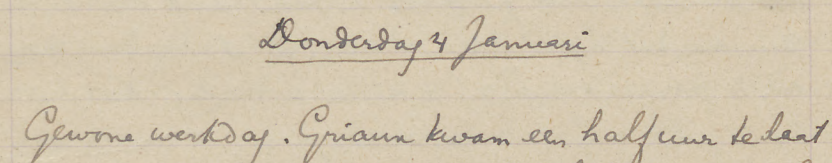 Donderdag 4 Januari
Gewone werkdag. Griaun kwam een half uur te laat